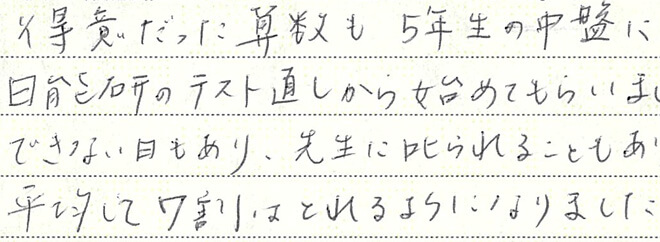 得意だった算数も 5年生の中盤に
日能研のテスト直しから始めてもらいまし
できない日もあり、先生に叱られることもあ
平均して7割はとれるようになりました